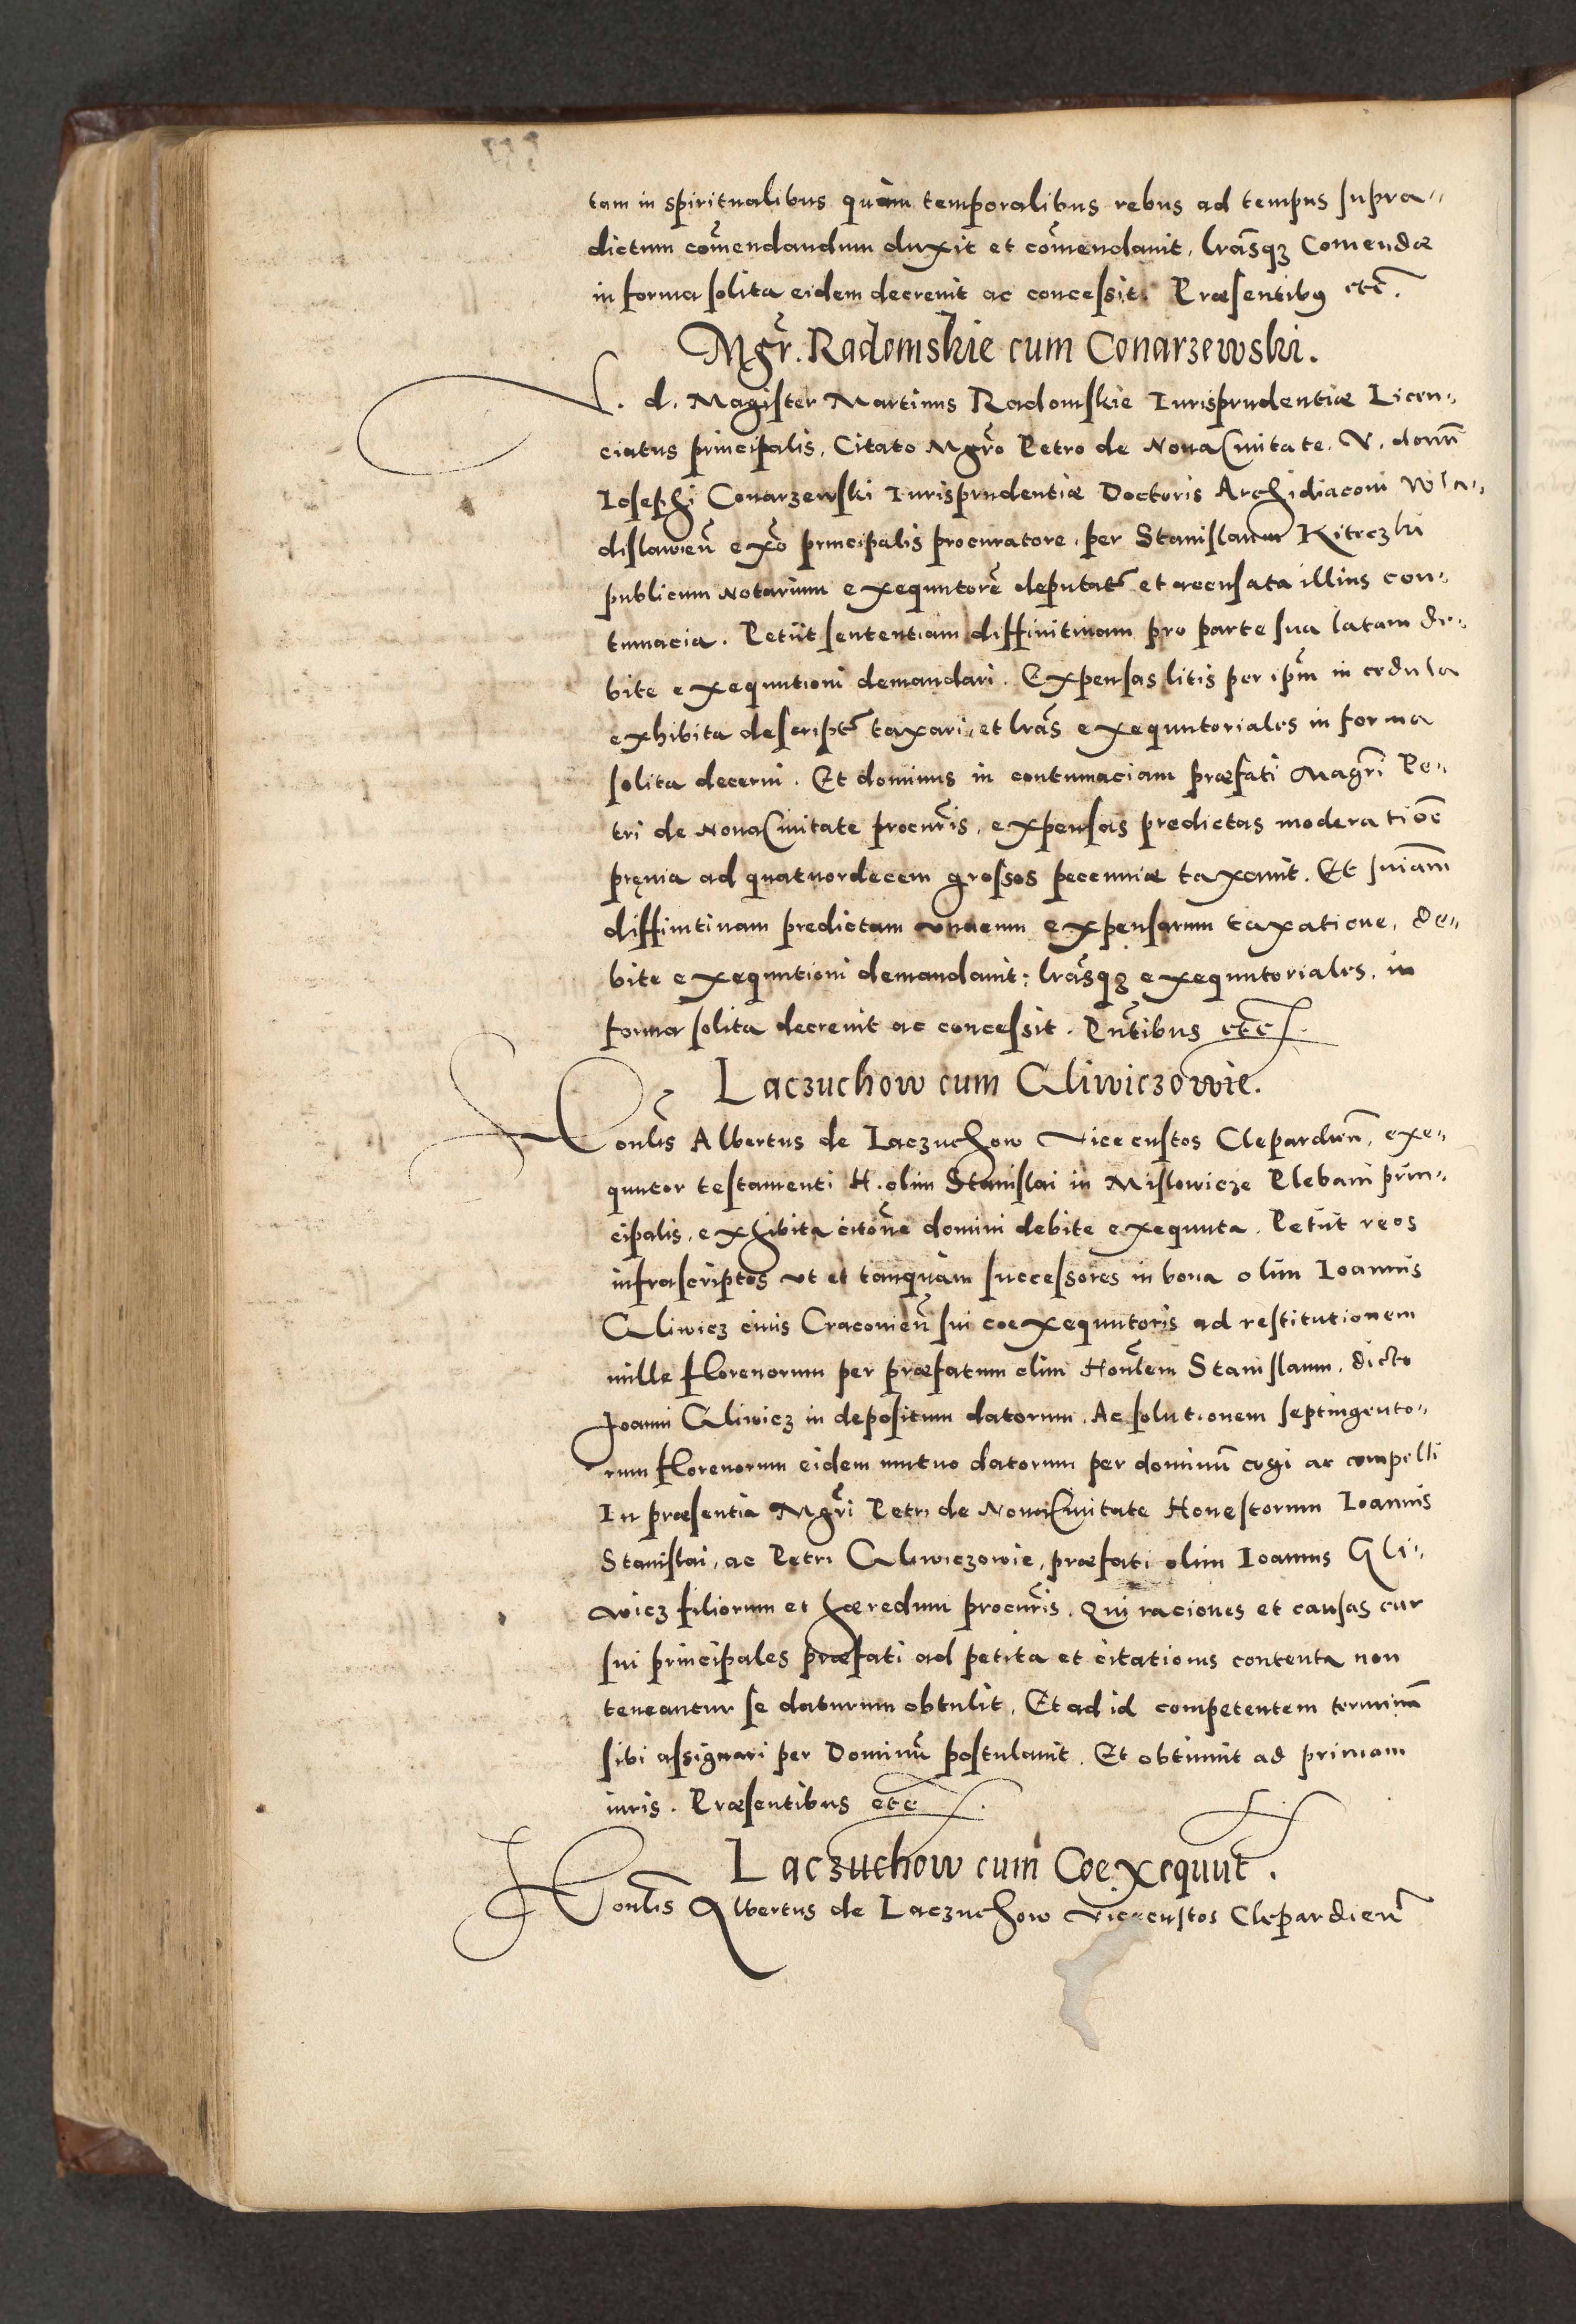 tam in spiritualibus quàm temporalibus rebus ad tempus supra-
dictum com̃endandum duxit et com̃endauit, lrãsqꝫ Comendæ
in forma solita eidem decreuit ac concessit. Præsentibꝰ etc̃.
Mgr̃. Radomskie cum Conarzewski.
V. d. Magister Martinus Radomskie Iurisprudentiæ Licen-
ciatus principalis, Citato Mgr̃o Petro de Noua Ciuitate, V. domñ
Iosephi Conarzewski Iurisprudentiæ Doctoris Archidiaconi Wla-
dislawieñ ex̃o principalis procuratore, per Stanislaum Kitrczki
publicum Notarium exequutorẽ deputat̃ et accusata illius con-
tumacia. Petiit sententiam diffinitiuam pro parte sua latam de-
bite exequutioni demandari. Expensas litis per ip̃m in cedula
exhibita descript̃ taxari, et lrãs exequutoriales in forma
solita decerni. Et dominus in contumaciam præfati Magr̃i Pe-
tri de Noua Ciuitate procur̃is, expensas predictas moderatiõe
pręuia ad quatuordecem grossos pecuniæ taxauit. Et sniãm
diffinitiuam predictam vnacum expensarum taxatione, de-
bite exequutioni demandauit: lrãsqꝫ exequutoriales, in
forma solita decreuit ac concessit. Pñtibus etc.
Laczuchow cum Gliwiczowie.
Honl̃is Albertus de Laczuchow Vicecustos Clepardieñ, exe-
quutor testamenti H. olim Stanislai in Mislowicze Plebani prin-
cipalis, exhibita citõne domini debite exequuta. Petiit reos
infrascriptos vt et tanquàm successores in bona olim Ioannis
Gliwicz ciuis Cracouieñ sui coexequutoris ad restitutionem
mille florenorum per præfatum olim Honl̃em Stanislaum, dicto
Joanni Gliwicz in depositum datorum. Ac solutionem septingento-
rum florenorum eidem mutuo datorum per dominũ cogi ac compelli
In præsentia Mgr̃i Petri de Noua Ciuitate Honestorum Ioannis
Stanislai, ac Petri Gliwiczowie, præfati olim Ioannis Gli-
wicz filiorum et hæredum procur̃is. Qui raciones et causas cur
sui principales præfati ad petita et citationis contenta non
teneantur se daturum obtulit. Et ad id competentem terminũ
sibi assignari per Dominũ postulauit. Et obtinuit ad primam
iuris. Præsentibus etc.
Laczuchow cum Coexequut.
Honl̃is Albertus de Laczuchow Vicecustos Clepardieñ